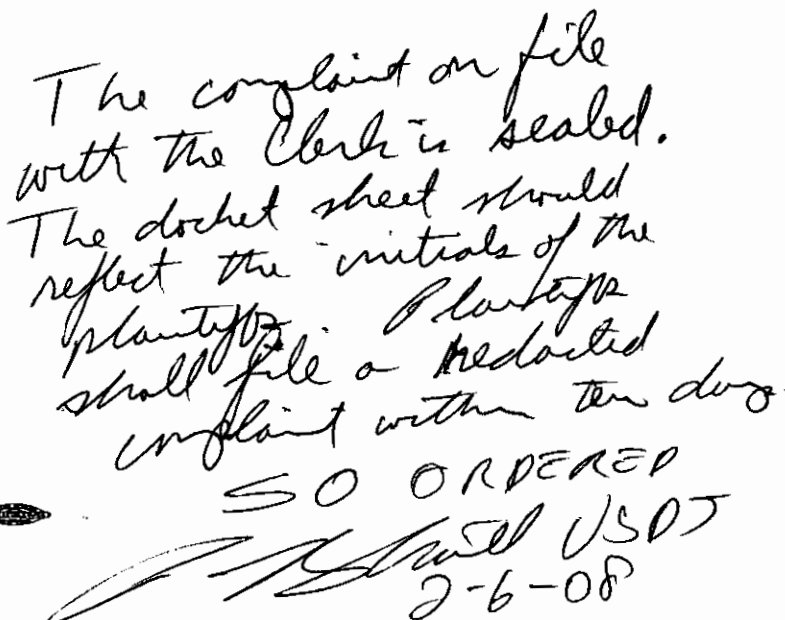 The complaint on file
with the Clerk is sealed.
The docket sheet should
reflect the initials of the
plaintiffs. Plaintiffs
shall file a redacted
complaint within ten days.
SO ORDERED
USDJ
2-6-08